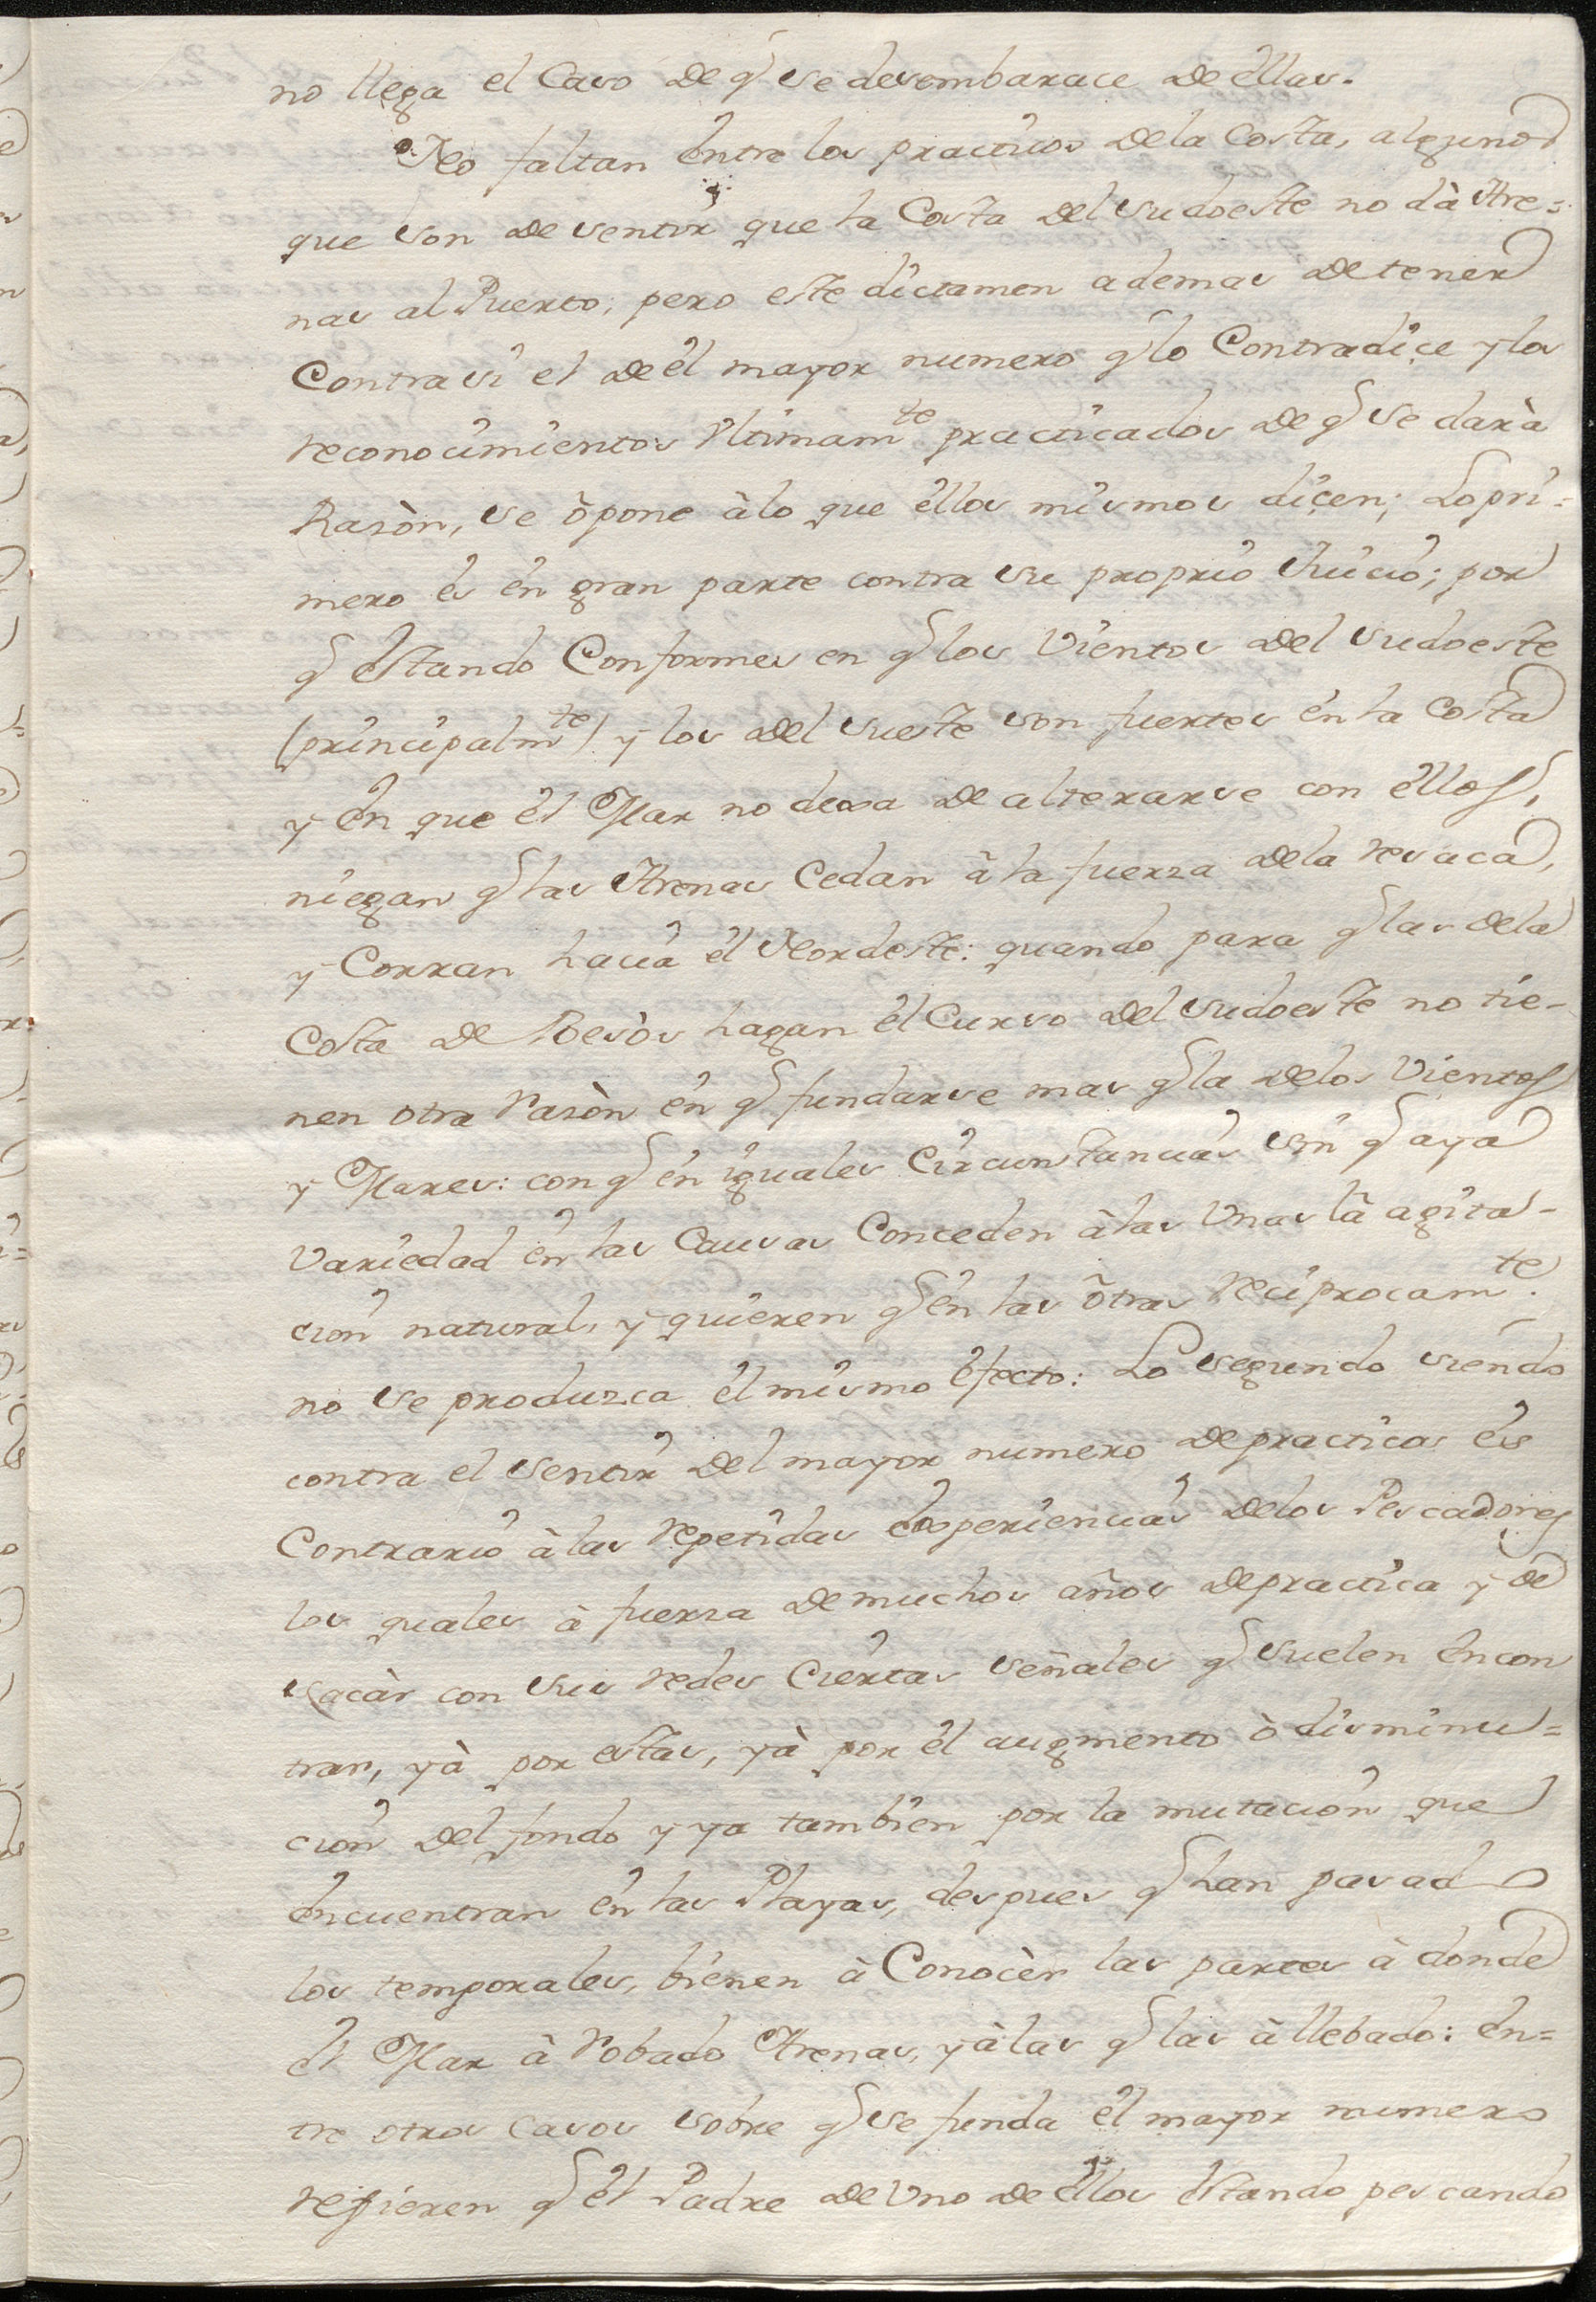 no llega el Caso de q̃ se desembarace de èllas.
No faltan èntre los practicos dela Costa, algunos
que son de sentir que la Costa del sudoeste no dà Are=
nas al Puerto; pero este dictamen ademas de tener
Contra si el de èl mayor numero q̃ lo Contradiçe y los
reconocimientos Vltimam.te practicados de q̃ se darà
Rasòn, se òpone àlo que èllos mismos diçen; Lo pri=
mero ès èn gran parte contra su proprio Juicio; por
q̃ èstando Conformes en q̃ los Vientos del sudoeste
(principalm.te) y los del sueste son fuertes èn la Costa
y èn que èl Mar no dexa de alterarse con èllos,
niegan q̃ las Arenas Cedan à la fuerza dela resaca,
y Corran hacia èl Nordeste: quando para q̃ las dela
Costa de Besòs hagan èl Curso del sudoeste no tie-
nen otra rasòn èn q̃ fundarse mas q̃ la delos Vientos
y Mares: con q̃ èn iguales Circunstancias sin q̃ aya
Variedad èn las Causas Conceden àlas Unas là agita-
ción natural, y quieren q̃ èn las òtras reciprocam.te
no se produzca èl mismo èfecto: Lo segundo siendo
contra el sentir del mayor numero de practicos ès
Contrario à las repetidas èxperiencias delos Pescadores
los quales à fuerza de muchos años de practica y de
sacàr con sus redes Ciertas señales q̃ suelen èncon
trar, yà por estas, yà por èl augmento ò disminu=
ción del fondo y ya tambien por la mutación que
èncuentran èn las Playas, despues q̃ han pasado
los temporales, bienen à Conocèr las partes à donde
èl Mar à robado Arenas, y à las q̃ las à llebado: èn=
tre otros casos sobre q̃ se funda èl mayor numero
refieren q̃ èl Padre de Uno de èllos èstando pescando